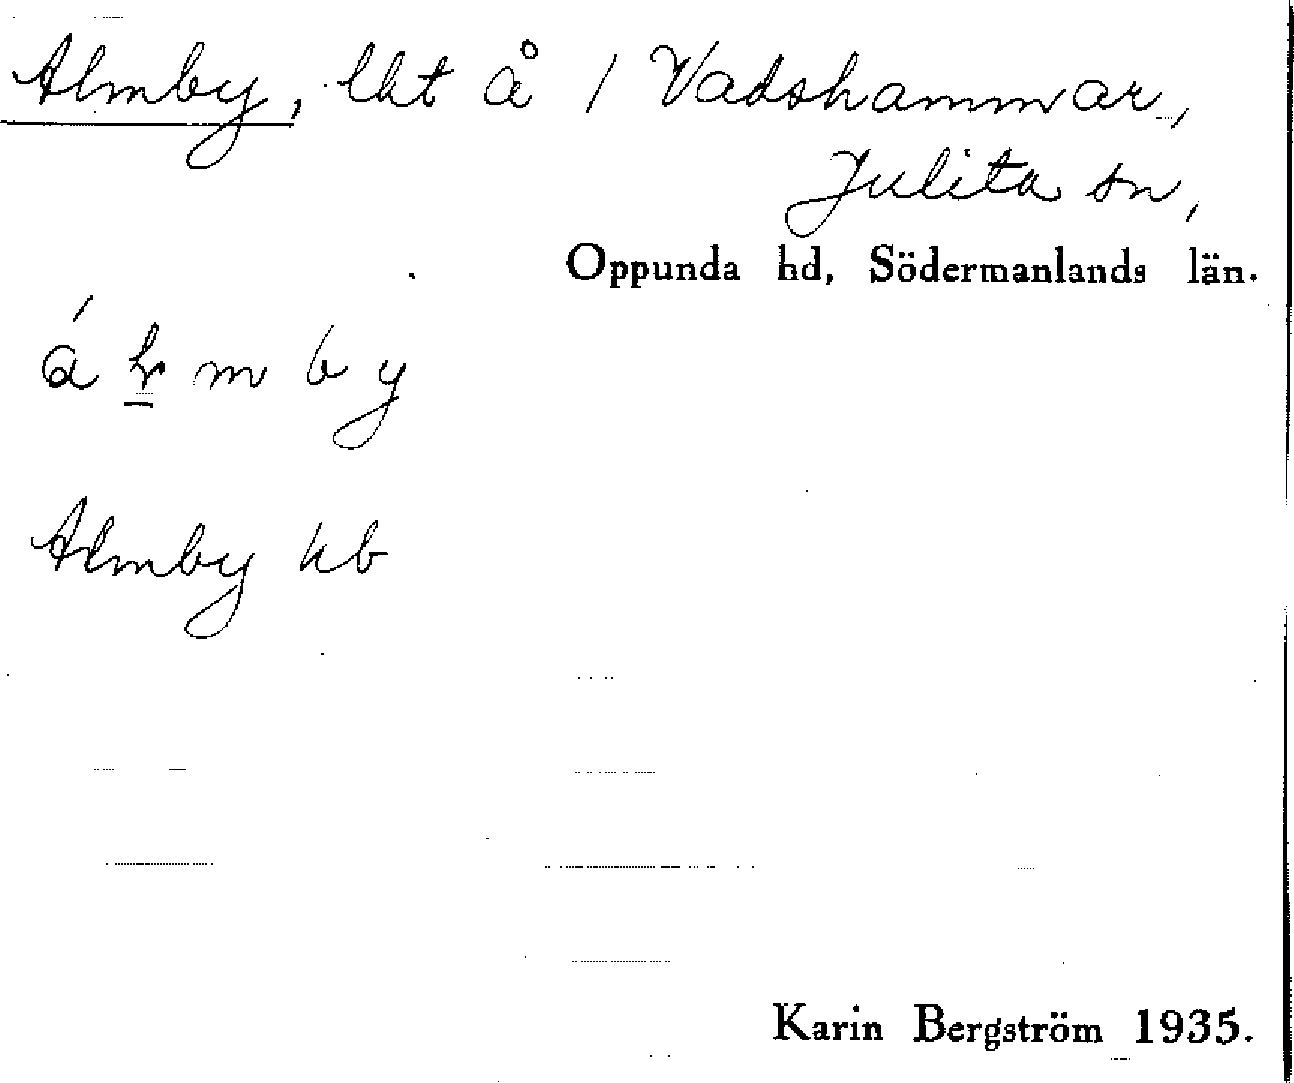 Almby, lht å 1 Vadshammar,
Julita sn,
Oppunda hd, Södermanlands län.
Almby kb
Karin Bergström 1935.